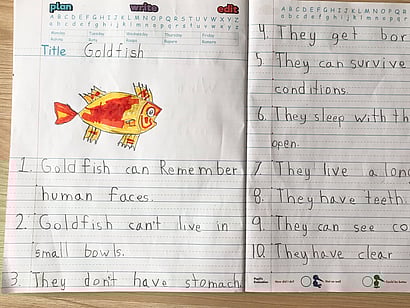 plan write edit
A B C D E F G H I J K L M N O P Q R S T U V W X Y Z
a b c d e f g h i j k l m n o p q r s t u v w x y z
Monday Tuesday Wednesday Thursday Friday
Title Goldfish
1. Goldfish can Remember
human faces.
2. Goldfish can't live in
small bowls.
3. They don't have stomach
A B C D E F G H I J K L M N O P Q R S
4. They get bor
5. They can survive
conditions.
6. They sleep with th
open.
7. They live a lon
8. They have teeth.
9. They can see co
10. They have clear